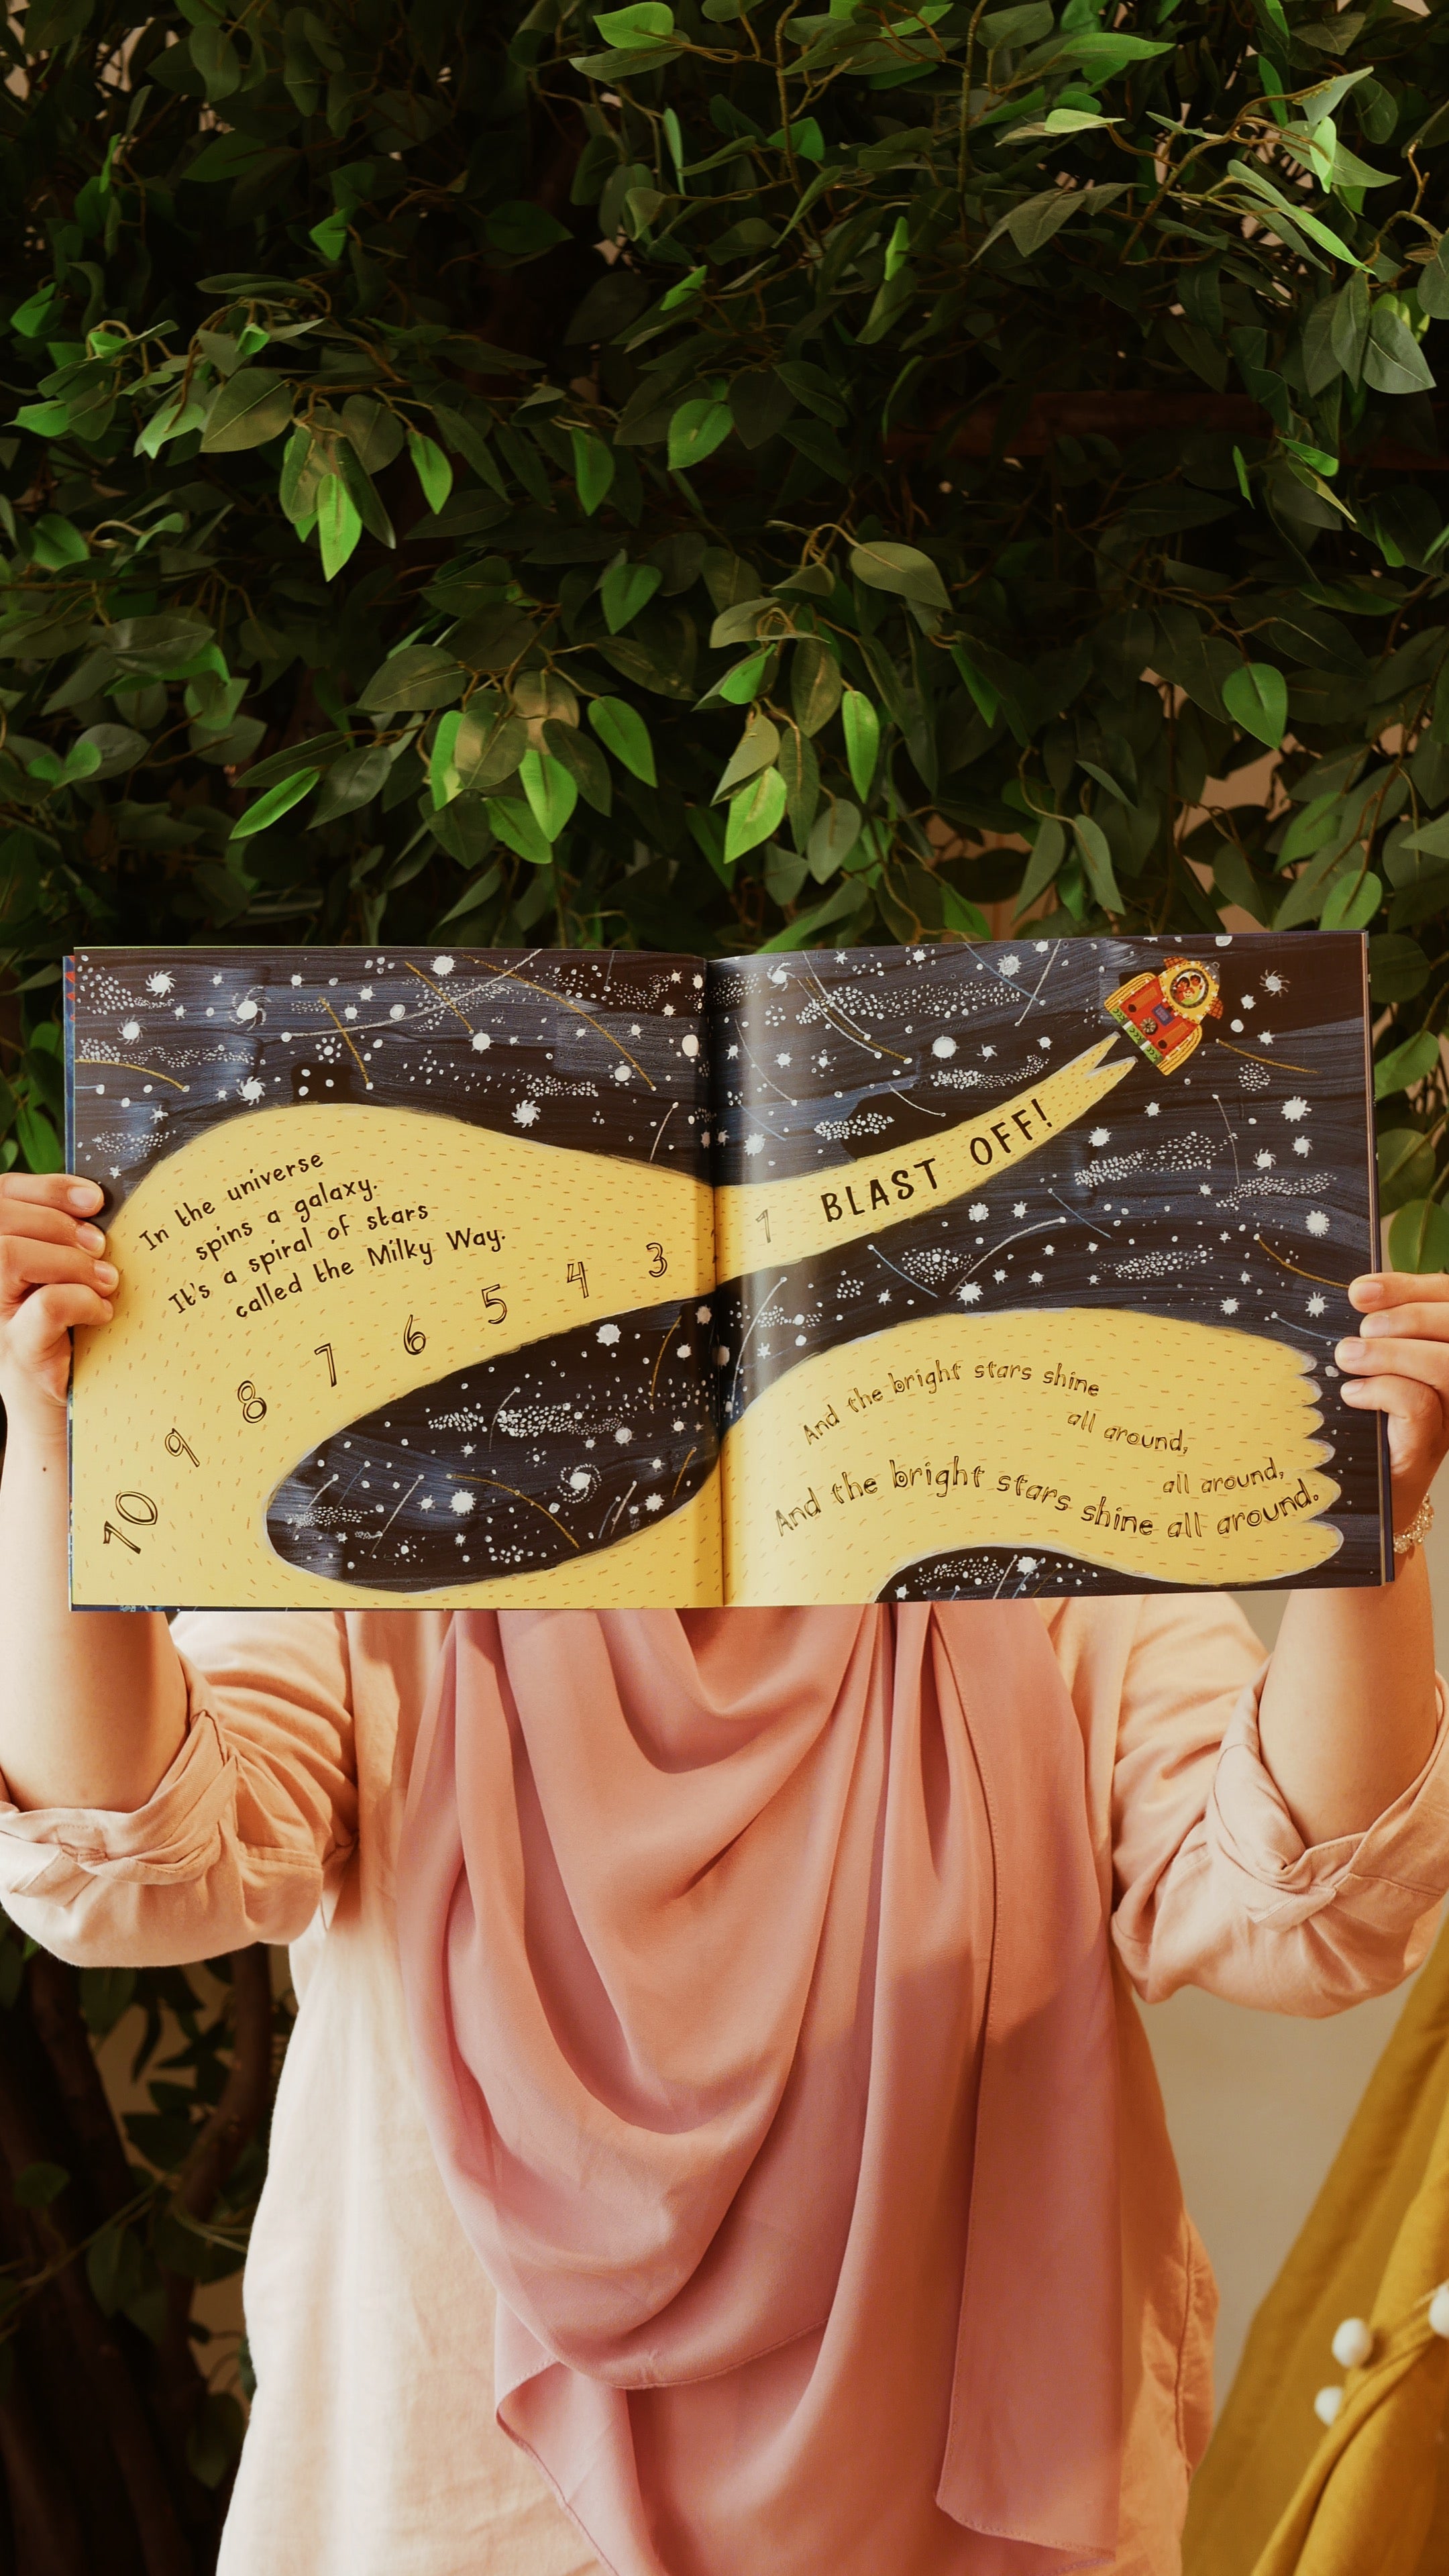 In the universe
spins a galaxy.
It's a spiral of stars
called the Milky Way.
10 9 8 7 6 5 4 3
1 BLAST OFF!
And the bright stars shine
all around,
all around,
And the bright stars shine all around.